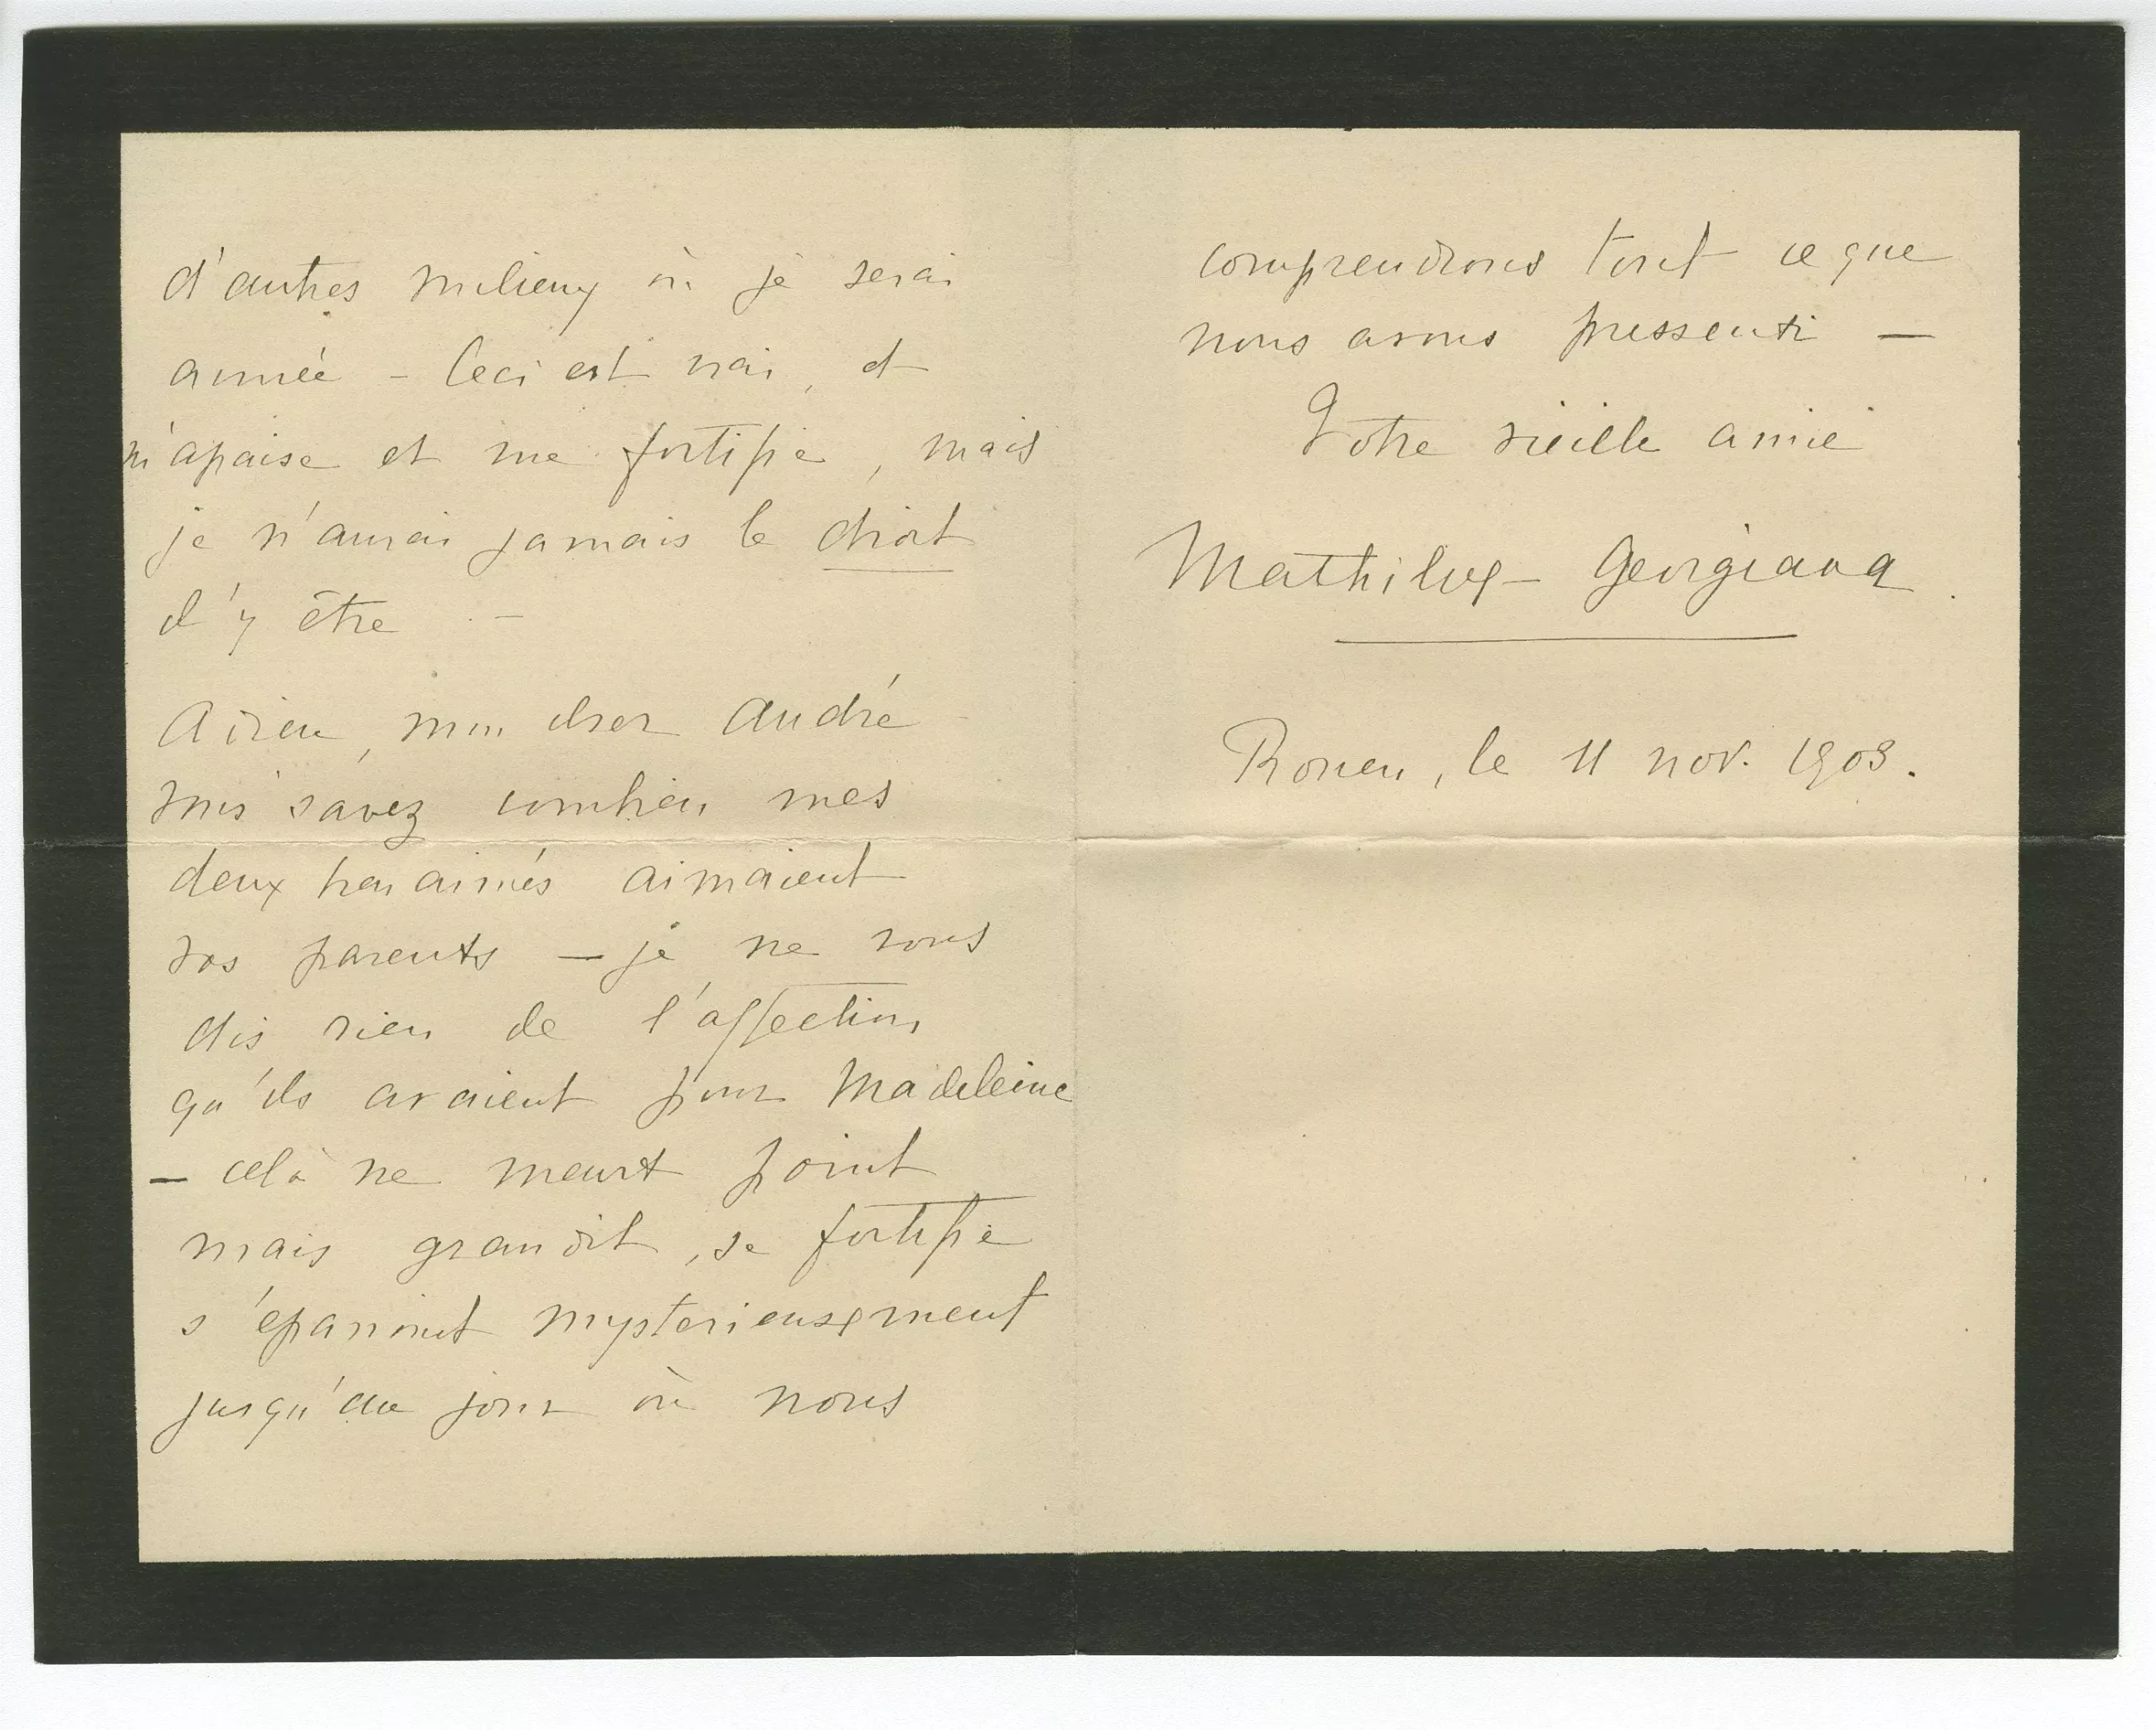 d'autres milieux où je serai
aimée - Ceci est vrai, et
m'apaise et me fortifie, mais
je n'aurai jamais le droit
d'y être -
Adieu, mon cher André -
vous savez combien mes
deux bien aimés aimaient
vos parents - je ne vous
dis rien de l'affection
qu'ils avaient pour Madeleine
- celà ne meurt point
mais grandit, se fortifie
s'épanouit mystérieusement
jusqu'au jour où nous
comprendrons tout ce que
nous avons pressenti -
Votre vieille amie
Georgiana
Rouen, le 11 nov. 1903.